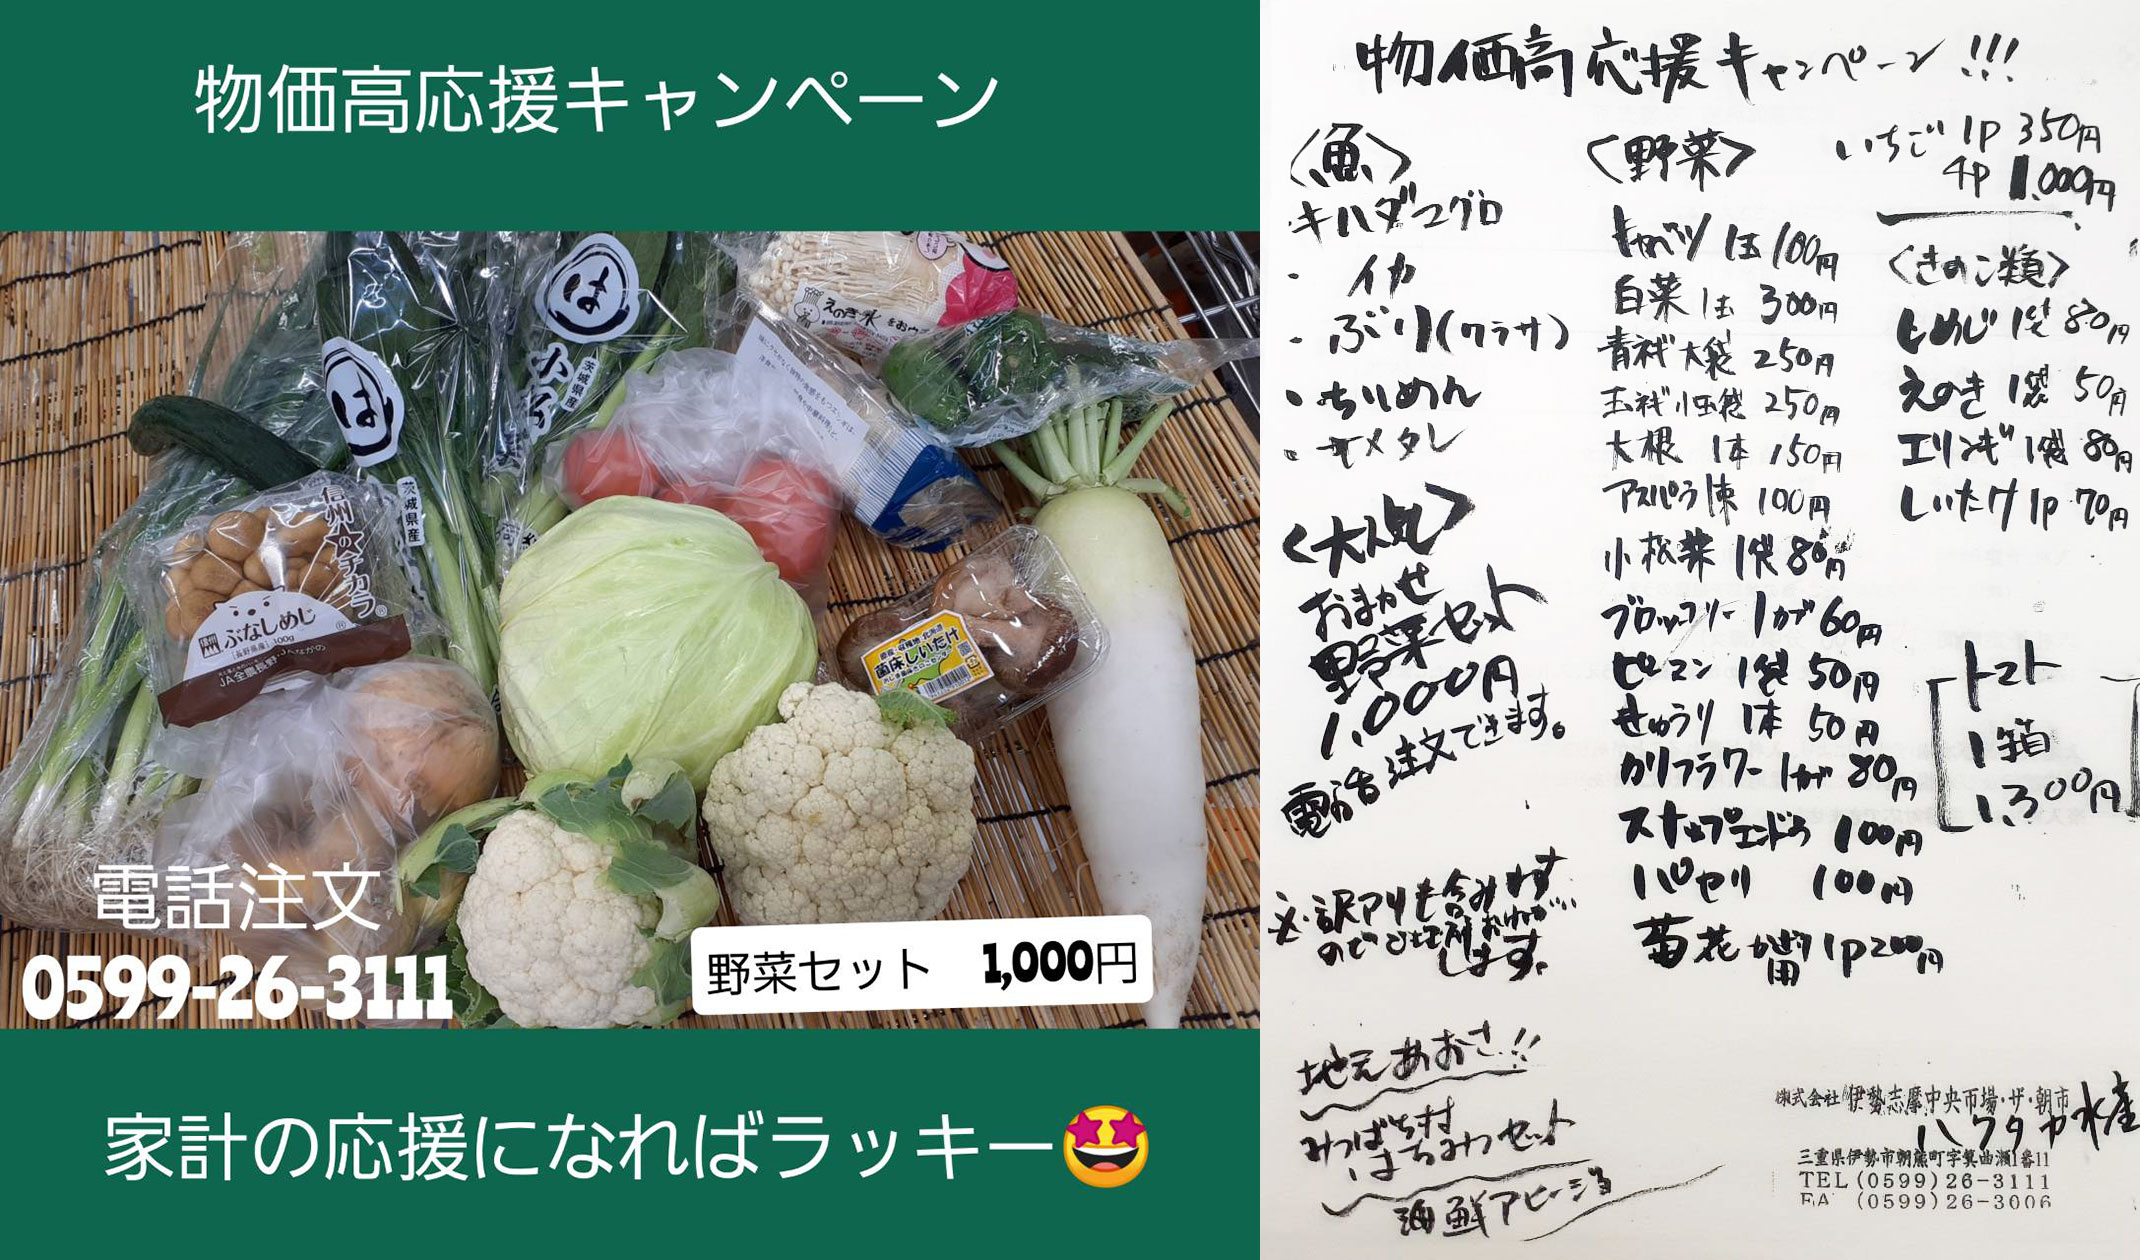 物価高応援キャンペーン
は
は
小ねぎ
茨城県産
茨城県産
えのき氷
信州の★チカラ
信州
ぶなしめじ
[長野県産] 100g
JA全農長野
菌床しいたけ
電話注文
0599-26-3111
野菜セット 1,000円
家計の応援になればラッキー🤩
物価高応援キャンペーン!!!
〈魚〉
・キハダマグロ
・イカ
・ぶり(ワラサ)
・ちりめん
・サメタレ
〈大人気〉
おまかせ
野菜セット
1,000円
電話注文できます。
※訳アリも含みます
ので
します。
地元あおさ!!
みつばち村
はちみつセット
海鮮アヒージョ
〈野菜〉
キャベツ 1玉 100円
白菜 1玉 300円
青ネギ 大袋 250円
玉ネギ 小袋 250円
大根 1本 150円
アスパラ 1束 100円
小松菜 1袋 80円
ブロッコリー 1コ 60円
ピーマン 1袋 50円
きゅうり 1本 50円
カリフラワー 1コ 80円
スナップエンドウ 100円
パセリ 100円
菊花 かざり用 1p 200円
いちご 1p 350円
4p 1,000円
〈きのこ類〉
しめじ 1袋 80円
えのき 1袋 50円
エリンギ 1袋 80円
しいたけ 1p 70円
トマト
1箱
1,300円
株式会社 伊勢志摩中央市場・ザ・朝市
ハクタカ水産
三重県伊勢市朝熊町字箕曲瀬1番11
TEL(0599)26-3111
FA (0599)26-3006